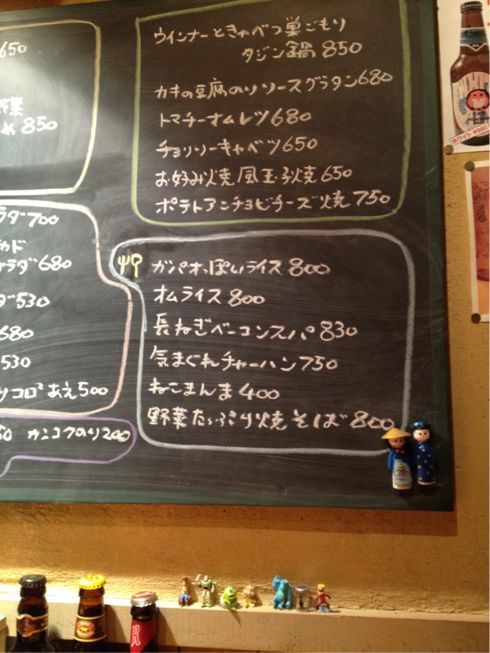 650
菜
め 850
ラダ 700
カド
ラダ 680
ダ 530
680
530
コロコロあえ 500
50 カンコクのり 200
ウインナーときゃべつ巣ごもり
タジン鍋 850
カキの豆腐のりソースグラタン 680
トマチーオムレツ 680
チョリソーキャベツ 650
お好み焼風玉子焼 650
ポテトアンチョビチーズ焼 750
ガパオっぽいライス 800
オムライス 800
長ねぎベーコンスパ 830
気まぐれチャーハン 750
ねこまんま 400
野菜たっぷり焼そば 800